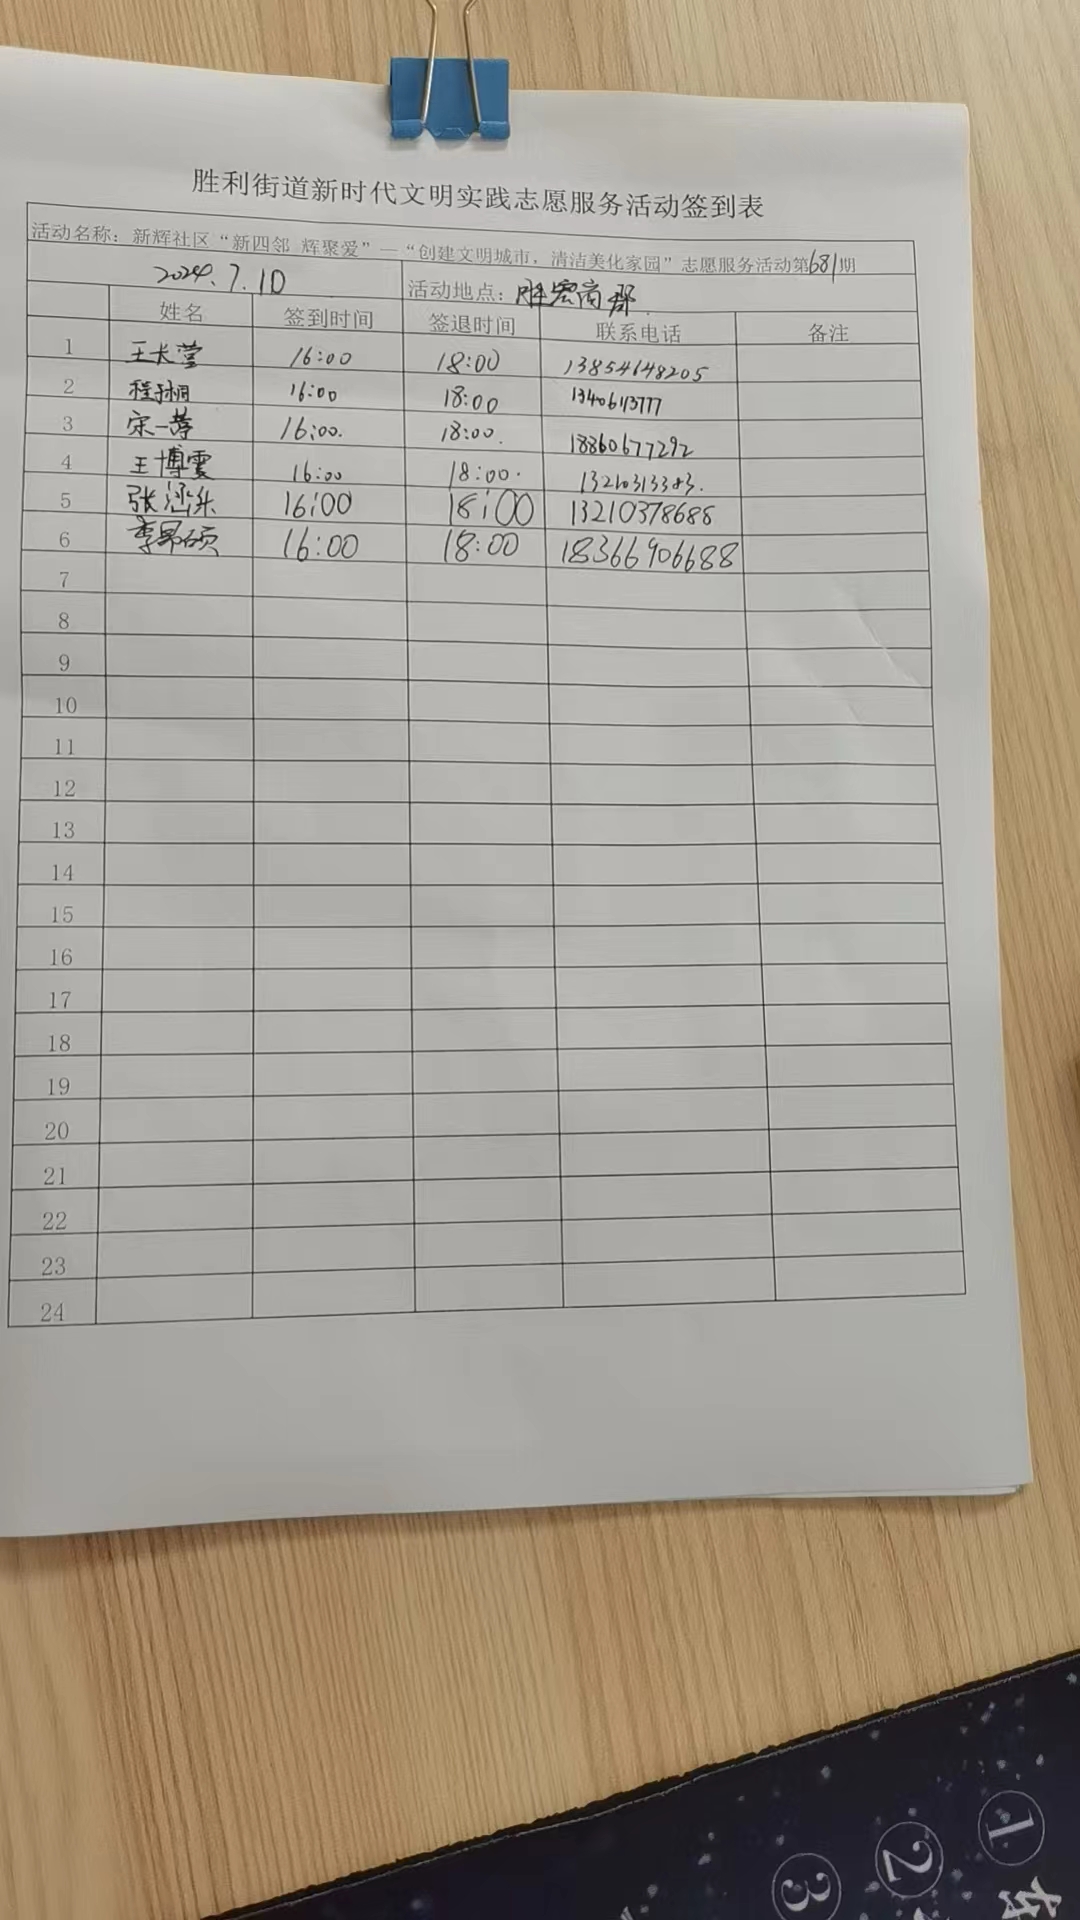 胜利街道新时代文明实践志愿服务活动签到表
活动名称：新辉社区“新四邻 辉聚爱”—“创建文明城市，清洁美化家园”志愿服务活动第681期
2024.7.10 活动地点：胜宏商都
姓名 签到时间 签退时间 联系电话 备注
1 王长莹 16:00 18:00 13854648205
2 16:00 18:00
3 宋一 16:00. 18:00. 18860677292
4 王博雯 16:00 18:00.
5 张涵乐 16:00 18:00 13210378688
6 李昂硕 16:00 18:00 18366906688
7
8
9
10
11
12
13
14
15
16
17
18
19
20
21
22
23
24
①
②
③